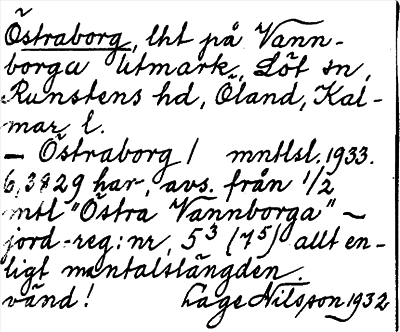 Östraborg, lht på Vann-
borga utmark, Löt sn,
Runstens hd, Öland, Kal-
mar l.
— Östraborg / mntlsl. 1933.
6,3829 har, avs. från 1/2
mtl "Östra Vannborga" —
jord-reg:nr, 5³ (7⁵) allt en-
ligt mantalslängden.
vänd! Lage Nilsson 1932